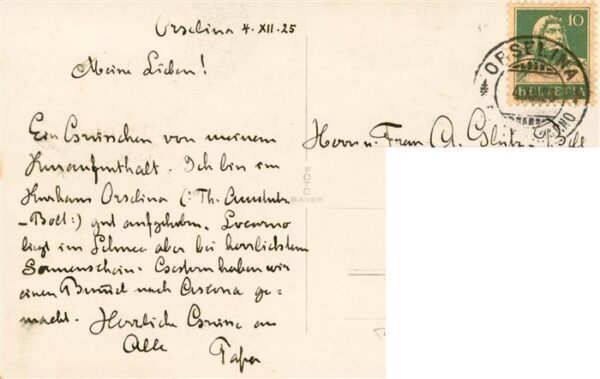 Orselina 4.XII.25
Meine Lieben!
Ein Grüsschen von meinem
Kuraufenthalt. Ich bin im
Kurhaus Orselina (: Th. Amstutz
-Bolt:) gut aufgehoben. Locarno
liegt im Schnee aber bei herrlichstem
Sonnenschein. Gestern haben wir
einen Bummel nach Ascona ge-
macht. Herzliche Grüsse an
Alle
Papa
Herrn u. Frau A. Glutz
10
HELVETIA
ORSELINA
BAYER